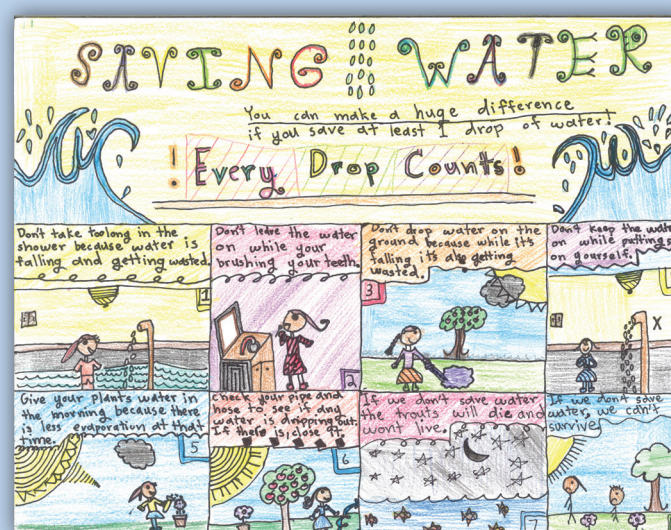 SAVING WATER
You can make a huge difference
if you save at least 1 drop of water!
! Every Drop Counts!
Don't take too long in the
shower because water is
falling and getting wasted.
1
Don't leave the water
on while your
brushing your teeth.
2
Don't drop water on the
ground because while it's
falling it's also getting
wasted.
3
Don't keep the
on while
on yourself.
X
Give your plants water in
the morning because there
is less evaporation at that
time.
5
check your pipe and
hose to see if any
water is dripping out.
If there is, close it.
6
If we don't save water,
the trouts will die and
wont live.
7
If we don't save
water, we can't
survive